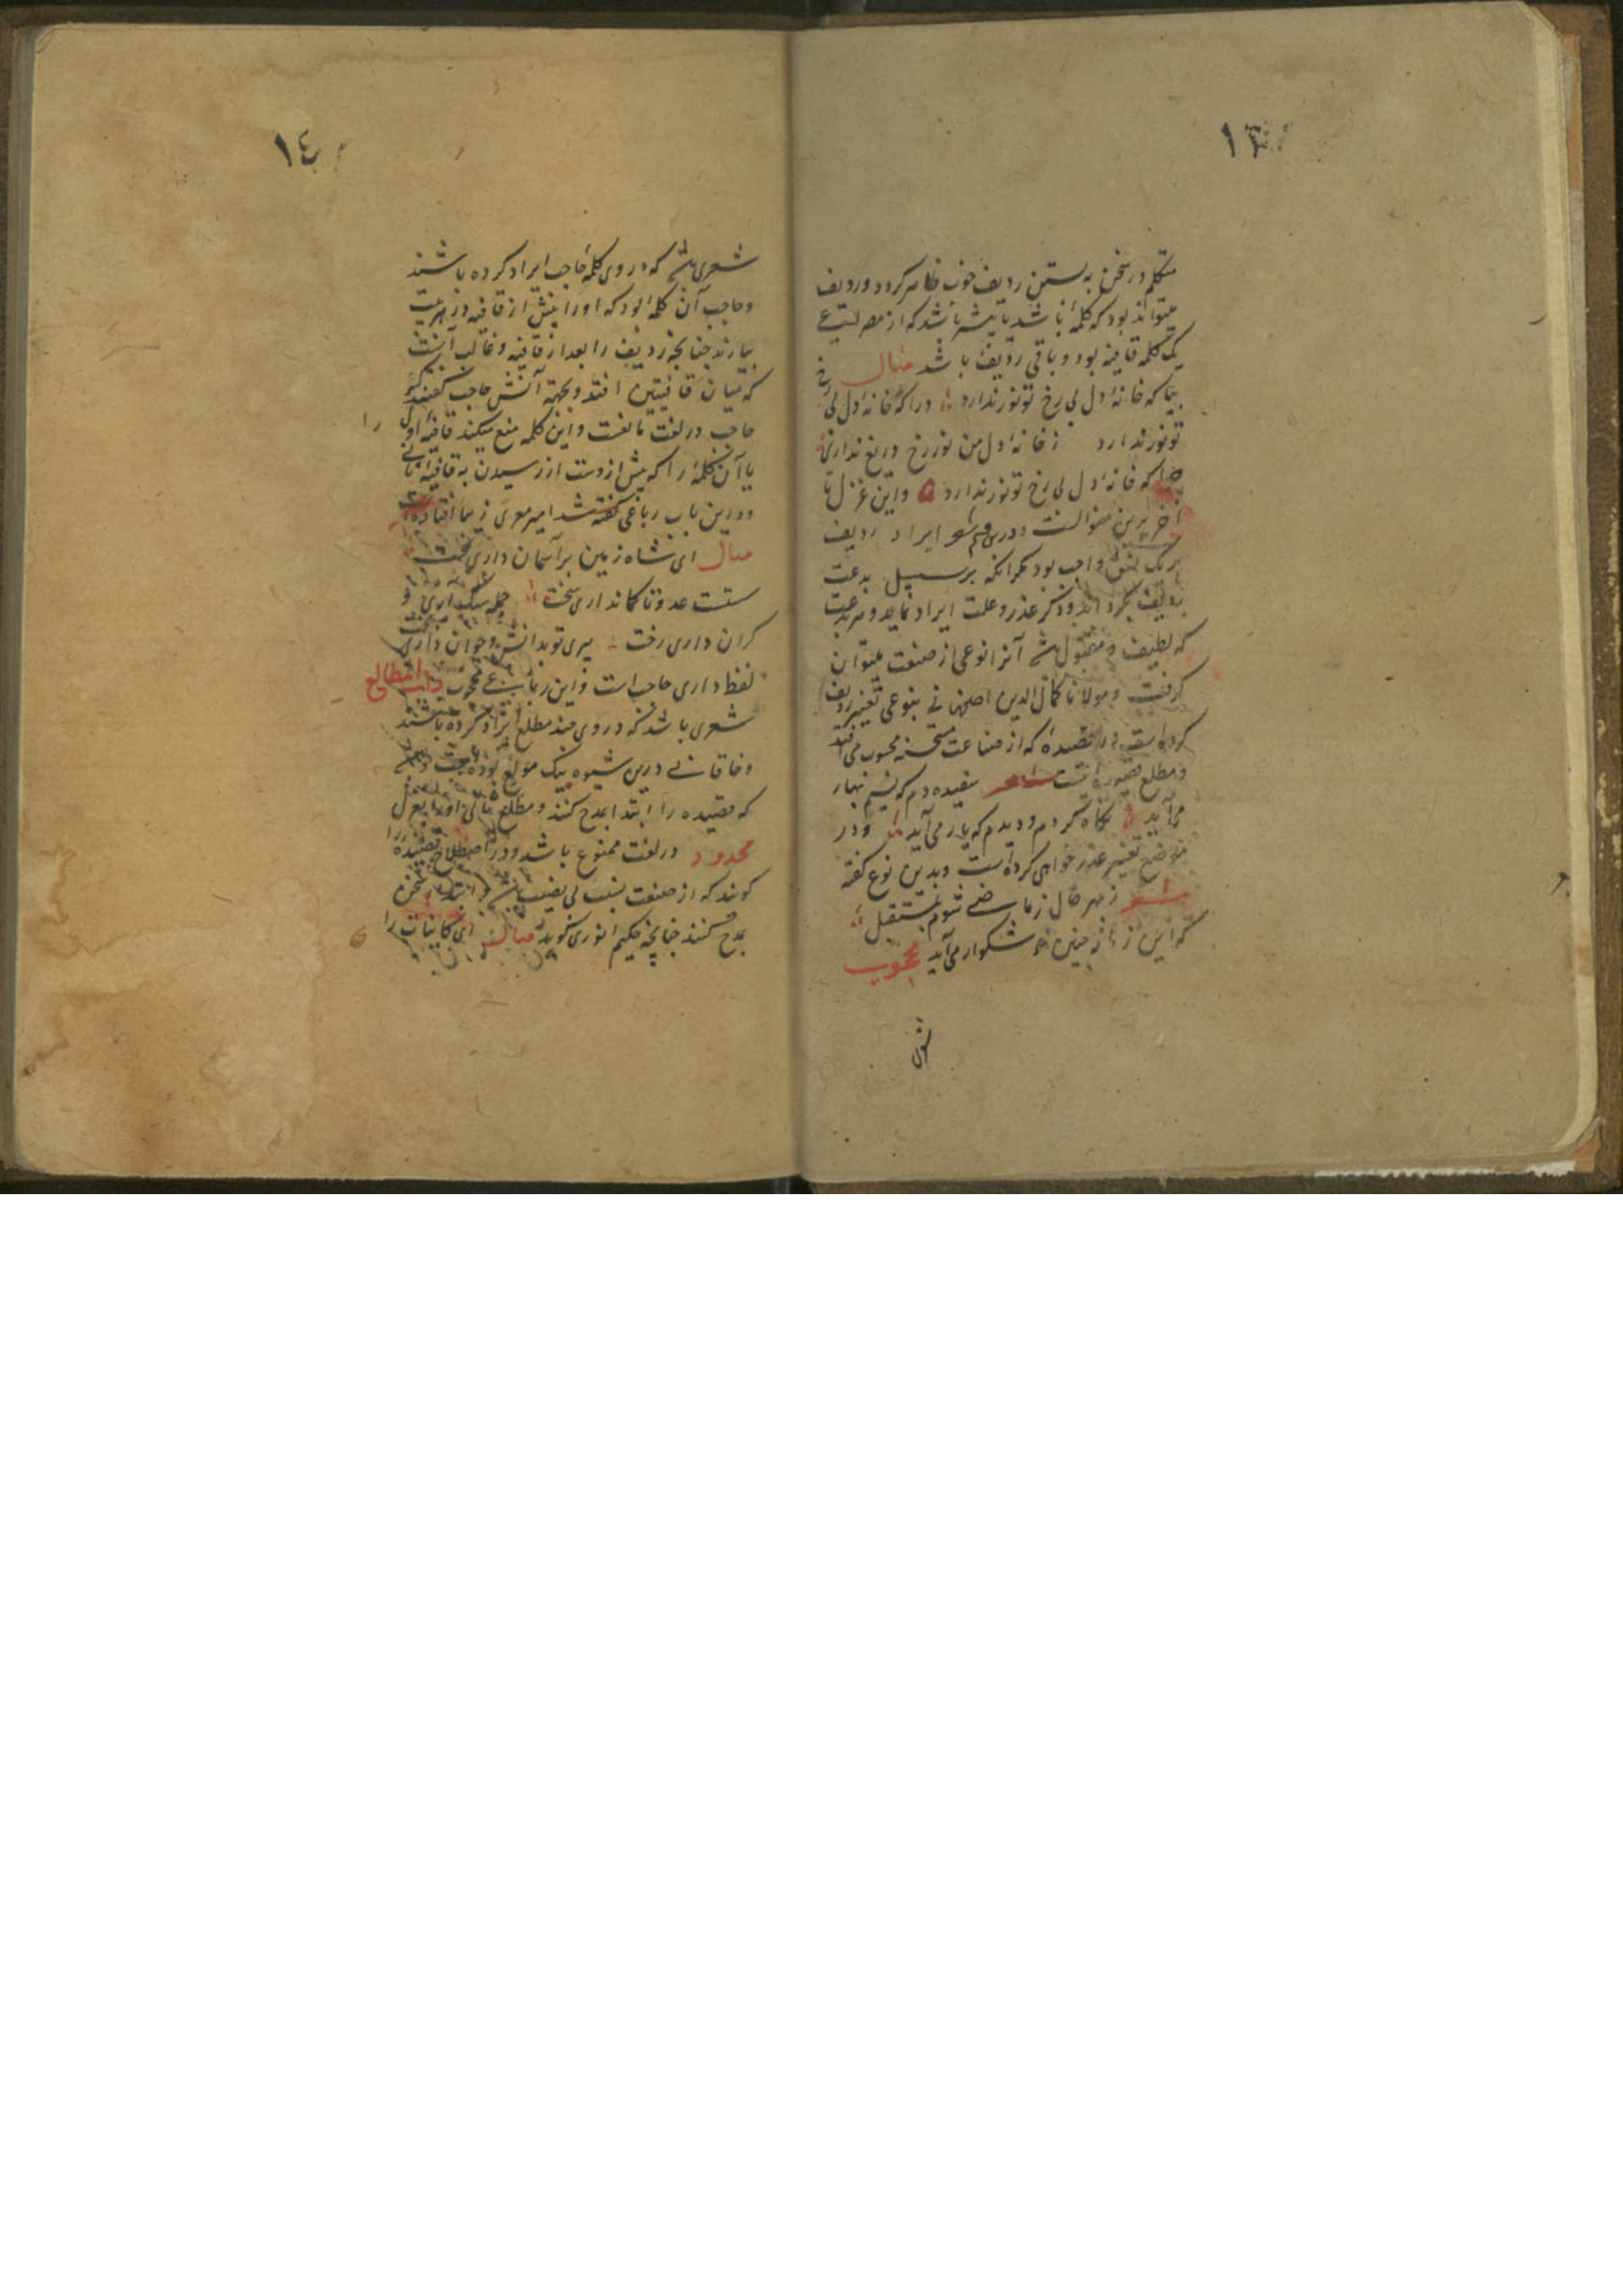 ١٣
متکلم در سخن به بستن ردیف خوب ظاهر کردد وردیف
میتواند بود که کلمهٔ باشد یا بیشتر باشد که از مصراعی
یک کلمه قافیه بود و باقی ردیف باشد مثال
بیا که خانهٔ دل بی رخ تو نور ندارد درا که خانهٔ دل بی رخ
تو نور ندارد ز خانهٔ دل من نور رخ دریغ نداری
چرا که خانهٔ دل بی رخ تو نور ندارد و این غزل تا
آخر برین منوالست ودرین قسم شعر ایراد ردیف
بر یک نسق واجب بود مکر آنکه بر سبیل بدعت
ردیف بکرداند وذکر عذر و علت ایراد نماید و هر بدعت
که لطیف و مقبول باشد آنرا نوعی از صنعت میتوان
کرفت و مولانا کمال الدین اصفهانی بنوعی تغییر ردیف
کرده است در قصیدهٔ که از صناعت مستحسنه محسوب می افتد
و مطلع قصیده اینست شعر سپیده دم که نسیم بهار
می آید نکاه کردم و دیدم که یار می آید و در
موضع تغییر عذر خواهی کرده است و بدین نوع کفته
شعر ز بهر حال ز ماضی شوم بمستقبل
که این ز چنین شکوار می آید محجوب
شعری
١٤
شعری باشد که در وی کلمهٔ حاجب ایراد کرده باشند
وحاجب آن کلمه بود که اورا پیش از قافیه در هر بیت
بیارند چنانچه ردیف را بعد از قافیه و غالب آنست
که میان قافیتین افتد و بجهة آنش حاجب کفتند که
حاجب در لغت مانعست و این کلمه منع میکند قافیهٔ اولی را
یا آن کلمهٔ را که پیش ازوست از رسیدن به قافیهٔ ثانی
ودرین باب رباعی کفته شد امیر معزی زیبا افتاده است
مثال ای شاه زمین بر آسمان داری تخت
سستست عدو تا کمانداری سخت حمله سبک آری و
کران داری رخت پیری تو بدانش و جوان داری بخت
لفظ داری حاجب است و این رباعی محجوب ذات المطالع
شعری باشد که در وی چند مطلع ایراد کرده باشند
وخاقانی درین شیوه نیک مولع بوده است
که قصیده را ابتدا بمدح کنند و مطلع ثانی اورا بغزل
محدود در لغت ممنوع باشد ودر اصطلاح قصیده را
کویند که از صنعت نسیب بی نصیب باشد و ابتدا سخن
بمدح کنند چنانچه حکیم انوری کوید مثال ای کاینات را